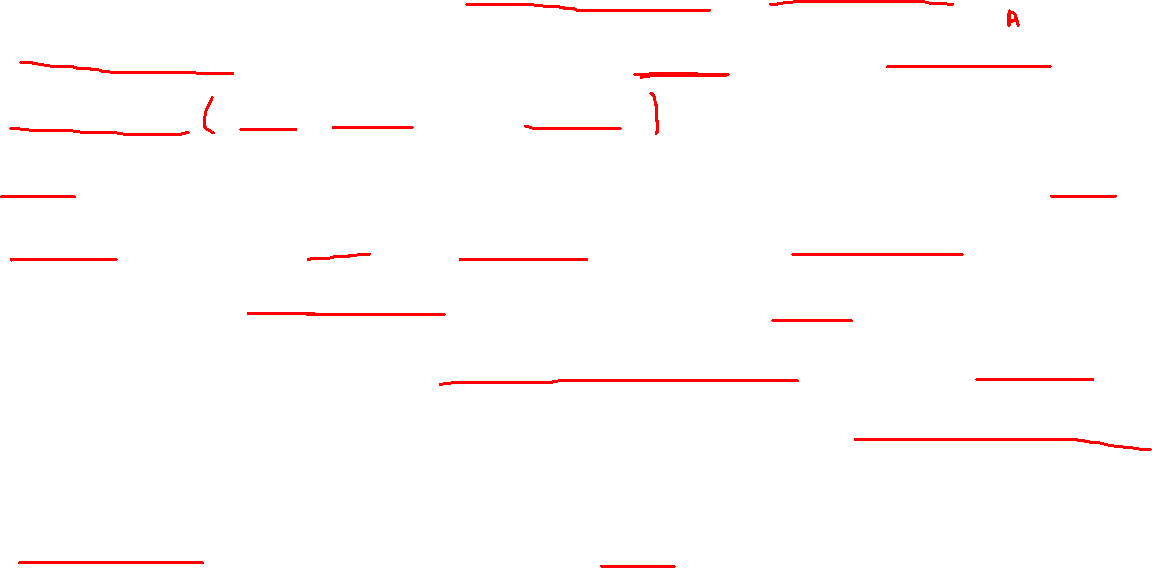 A
( )